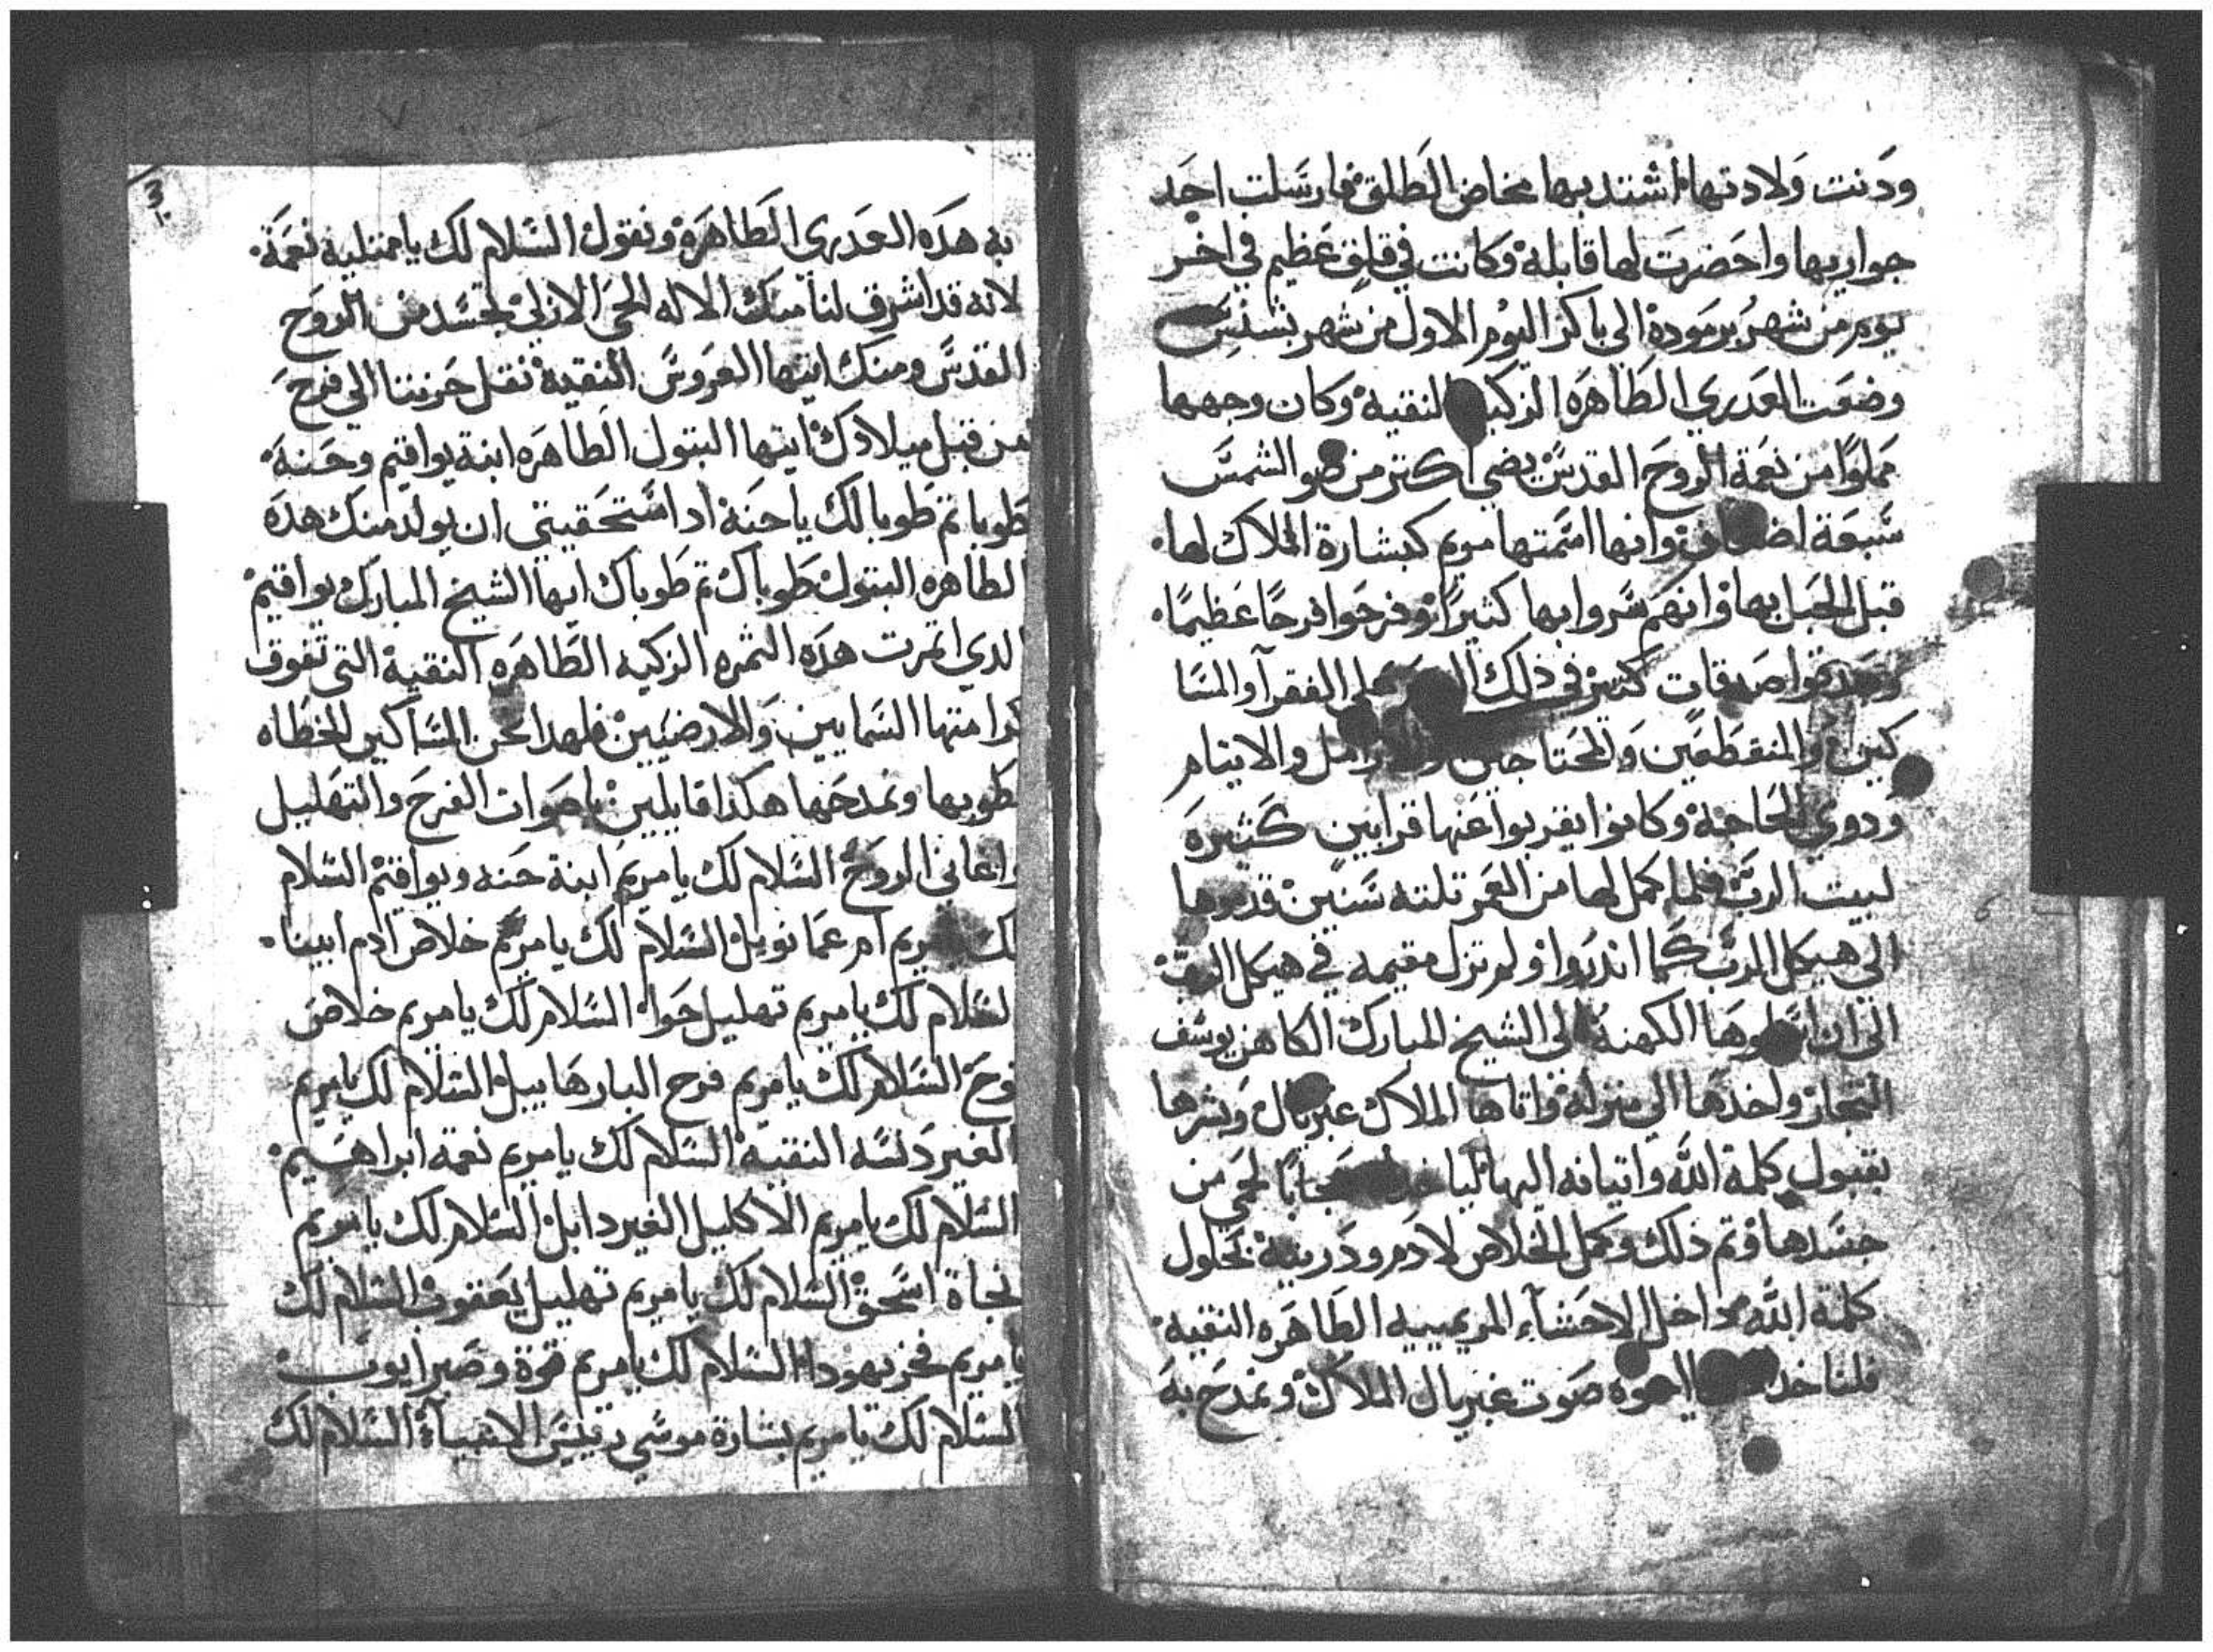 ودنت ولادتها اشتد بها مخاض الطلق فارسلت احد
جواريها واحضرت لها قابلة وكانت في قلق عظيم في اخر
يوم من شهر برموده الى باكر اليوم الاول من شهر بشنس
وضعت العدري الطاهره الزكية النقية وكان وجهها
مملوا من نعمة الروح القدس يضي اكتر من ضو الشمس
سبعة اضعاف وانها اسمتها مريم كبشارة الملاك لها
قبل الحبل بها وانهم سروا بها كثيرا وفرحوا فرحا عظيما
وصدقوا صدقات كتير في ذلك على الفقرآ والمسا
كين والمنقطعين والمحتاجين والارامل والايتام
ودوي الحاجة وكانوا يقربوا عنها قرابين كثيره
لبيت الرب فلما كمل لها من العمر تلته سنين قدموها
الى هيكل الرب كما اندروا ولم تزل مقيمه في هيكل الرب
الى ان الكهنة الي الشيخ المبارك الكاهن يوسف
النجار واخدها الى منزله واتاها الملاك غبريال وبشرها
بقبول كلمة الله واتيانه اليها حجابا لحمي من
جسدها وتم ذلك وكمل الخلاص لادم ودريته بحلول
كلمة الله داخل الاحشآء المريميه الطاهره النقيه
فلناخد صوت غبريال الملاك ونمدح به
به هده العدرى الطاهرة ونقول السلام لك ياممتليه نعمة
لانه قد اشرق لنا منك الاله الحي الازلي بجسد من الروح
القدس ومنك ايتها العروس النقية نقل حزننا الي فرح
من قبل ميلادك ايتها البتول الطاهره ابنة يواقيم وحنة
طوبا تم طوبا لك ياحنة اد استحقيتي ان يولد منك هده
الطاهره البتول طوباك تم طوباك ايها الشيخ المبارك يواقيم
الدي اتمرت هده الثمره الزكيه الطاهره النقية التي تفوق
كرامتها السمايين والارضيين فلهدا نحن المساكين الخطاه
نطوبها ونمدحها هكذا قايلين باصوات الفرح والتهليل
واغاني الروح السلام لك يا مريم ابنة حنه ويواقيم السلام
لك مريم ام عمانويل السلام لك يا مريم خلاص ادم ابينا
السلام لك يا مريم تهليل حوا السلام لك يا مريم خلاص
نوح السلام لك يا مريم فرح البار هابيل السلام لك يا مريم
الغير دنسه النقية السلام لك يا مريم نعمة ابراهيم
السلام لك يا مريم الاكليل الغير دابل السلام لك يا مريم
نجاة اسحق السلام لك يا مريم تهليل يعقوب السلام لك
يا مريم فخر يهودا السلام لك يا مريم قوة وصبر ايوب
السلام لك يا مريم بشارة موسي رييس الانبيآء السلام لك